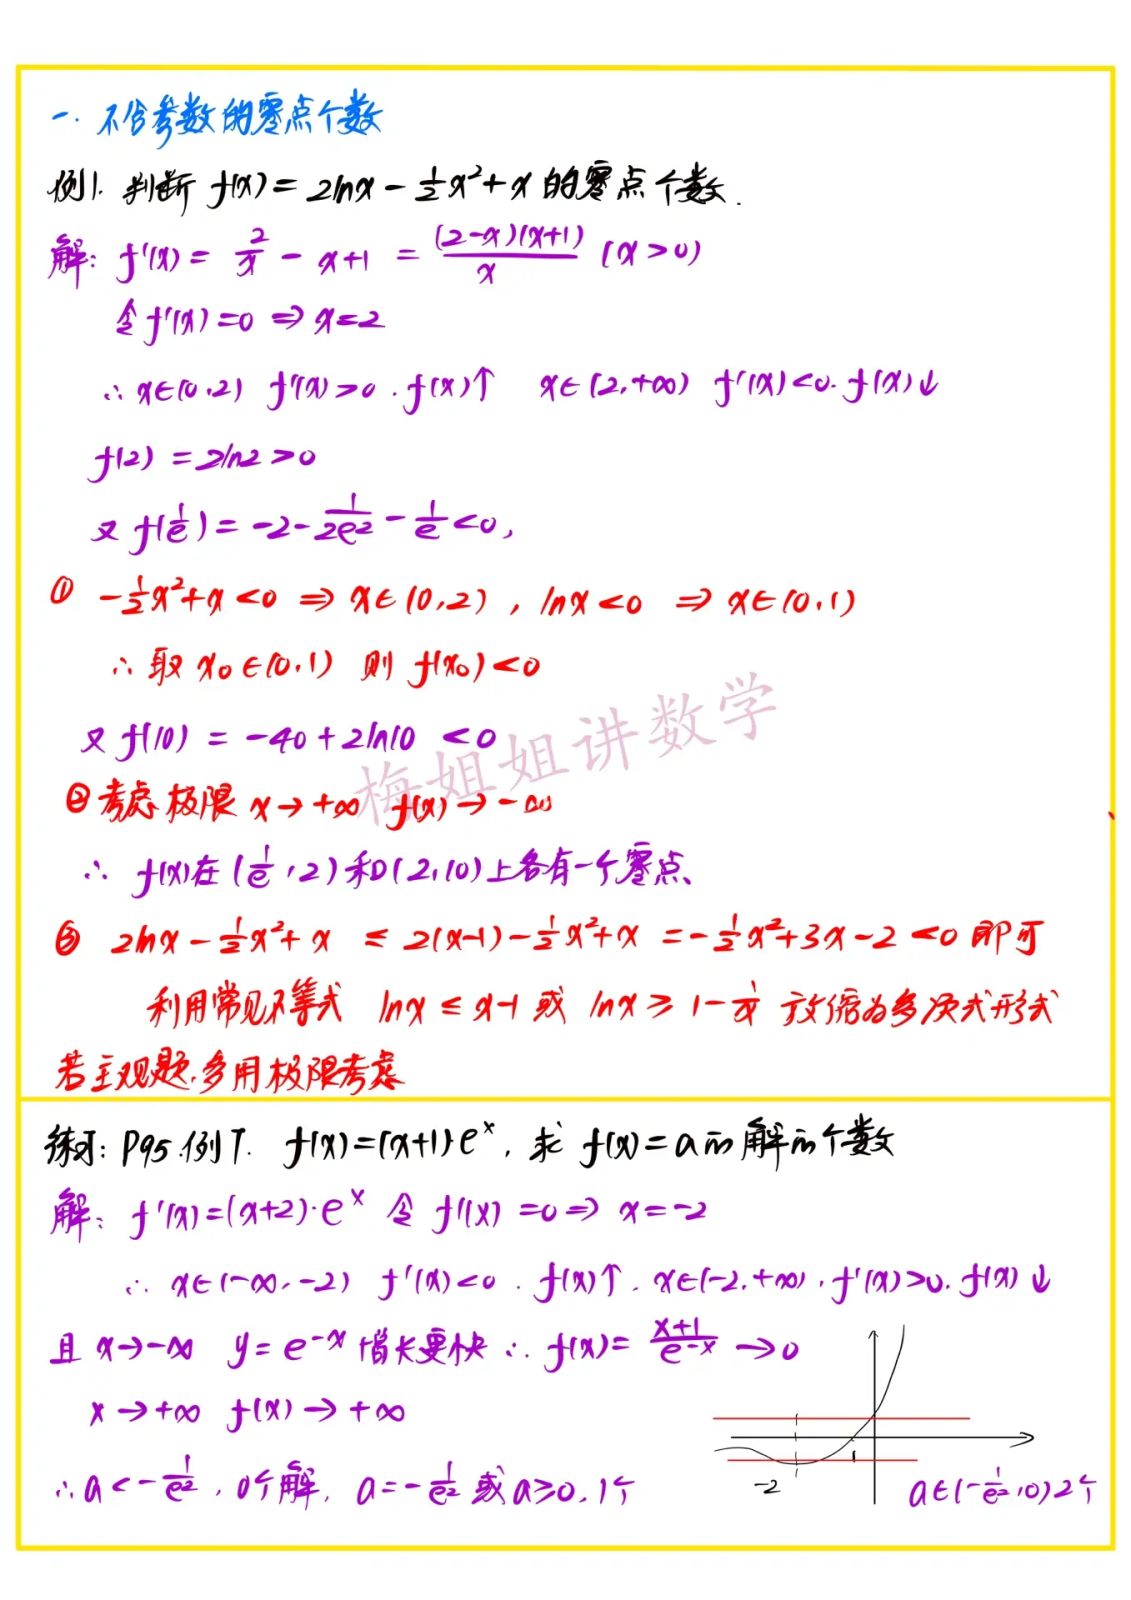 一. 不含参数的零点个数
例1. 判断 f(x) = 2lnx - ½x² + x 的零点个数.
解: f'(x) = 2/x - x+1 = (2-x)(x+1)/x (x>0)
令f'(x)=0 ⇒ x=2
∴ x∈(0,2) f'(x)>0. f(x)↑ x∈(2,+∞) f'(x)<0. f(x)↓
f(2) = 2ln2 >0
又 f(1/e) = -2 - 1/2e² - 1/e <0,
① -½x²+x<0 ⇒ x∈(0,2), lnx<0 ⇒ x∈(0,1)
∴ 取 x₀∈(0,1) 则 f(x₀)<0
又 f(10) = -40+2ln10 <0
梅姐姐讲数学
②考虑极限 x→+∞ f(x)→-∞
∴ f(x)在(1/e,2)和(2,10)上各有一个零点、
③ 2lnx-½x²+x ≤ 2(x-1)-½x²+x = -½x²+3x-2 <0 即可
利用常见不等式 lnx ≤ x-1 或 lnx ≥ 1-1/x 放缩为多次式形式
若主观题.多用极限考虑
练习: P95.例7. f(x)=(x+1)·eˣ, 求 f(x)=a的解的个数
解: f'(x)=(x+2)·eˣ 令 f'(x)=0⇒ x=-2
∴ x∈(-∞,-2) f'(x)<0. f(x)↑. x∈(-2,+∞), f'(x)>0. f(x)↓
且 x→-∞ y=e⁻ˣ 增长更快 ∴ f(x)= x+1/e⁻ˣ →0
x→+∞ f(x)→+∞
∴a<-1/e², 0个解, a=-1/e² 或a≥0, 1个
-2
1
a∈(-1/e²,0)2个